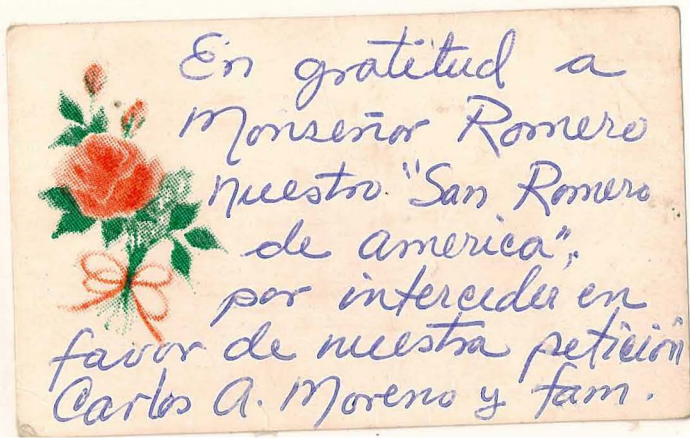 En gratitud a
Monseñor Romero
nuestro "San Romero
de america",
por interceder en
favor de nuestra petición
Carlos A. Moreno y fam.